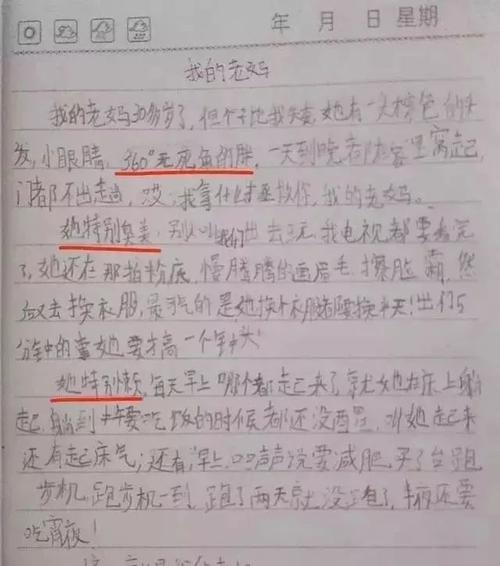 年 月 日 星期
我的老妈
我的老妈30多岁了，但个子比我矮，她有一头棕色的头
发，小眼睛，360°无死角的胖，一天到晚都在家里窝起，
门都不出走尚，哎，我拿什么拯救你，我的老妈。
她特别臭美，别人叫我们出去玩，我电视都要看完
了，她还在那拍粉底，慢腾腾的画眉毛，擦脸霜，然
后又去换衣服，最气的是她换个衣服都要换半天！出门5
分钟的事她要搞一个钟头！
她特别懒，每天早上哪个都走起来了，就她在床上躺
起，躺到中午要吃饭的时候都还没醒，叫她起来
还有起床气，还有，早上口口声声说要减肥，买了台跑
步机，跑步机一到，跑了两天就没跑了，半夜还要
吃宵夜！